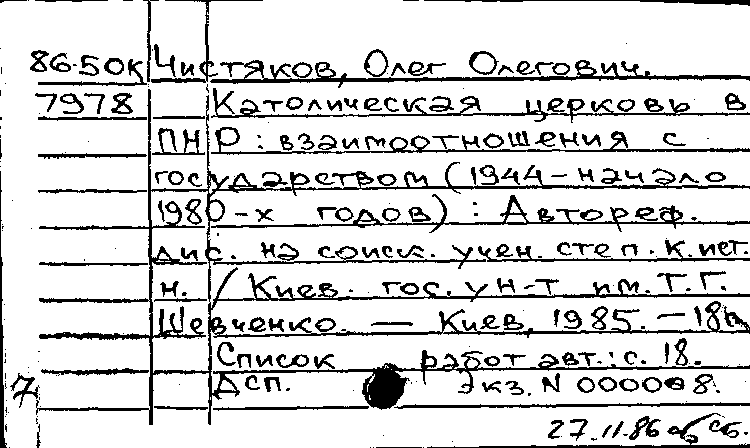 86-50к Чистяков, Олег Олегович.
7978 Католическая церковь в
ПНР: взаимоотношения с
государством (1944-начало
1980-х годов): Автореф.
дис. на соиск. учен. степ. к.ист.
н. / Киев. гос. ун-т им. Т.Г.
Шевченко. — Киев, 1985. — 18с.
Список работ авт.: с. 18.
7 Дсп. Экз. N 000008.
27.11.86